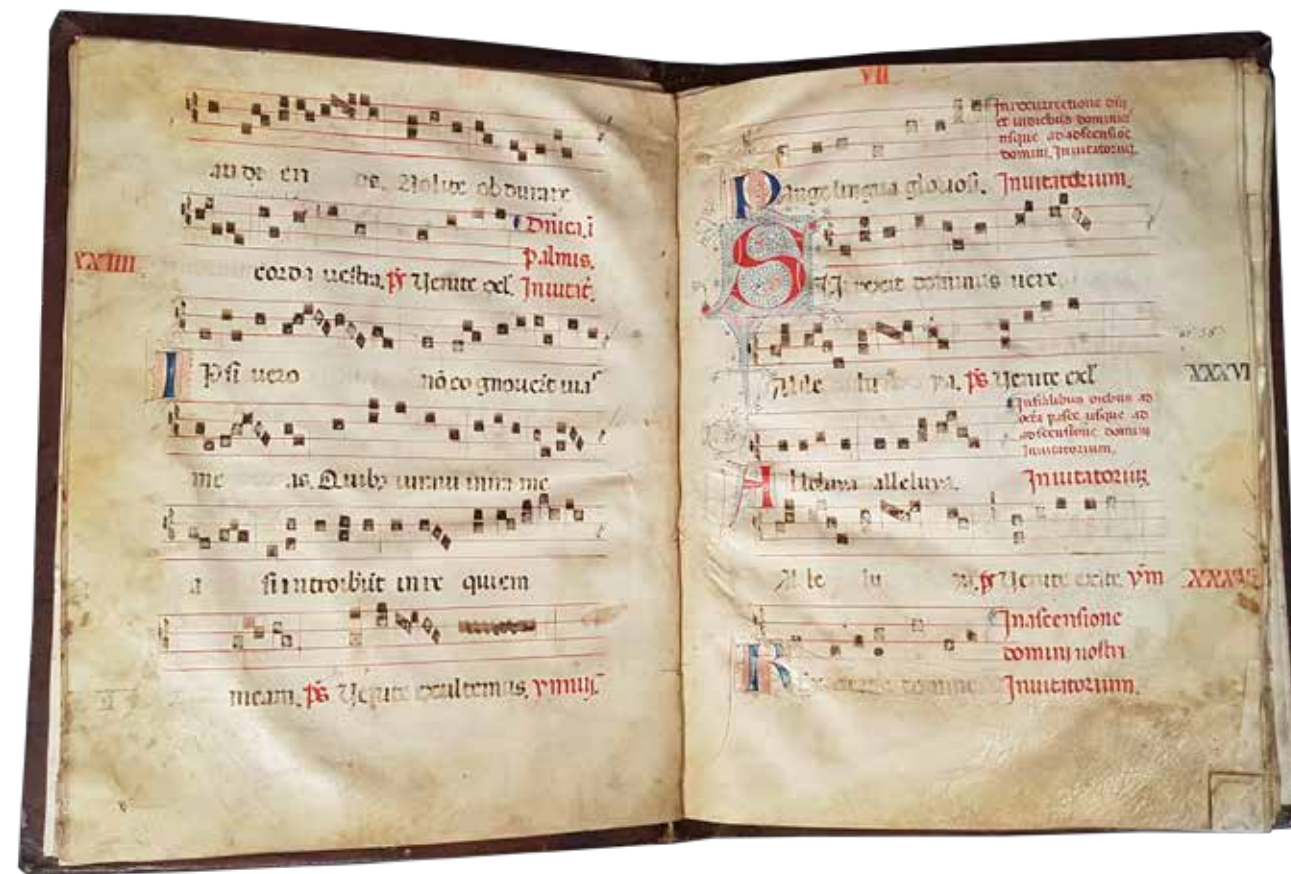 au de en tes. Nolite obdurare
Dnica i
Palmis.
XXIIII
corda uestra. ps Uenite exl. Inuitat.
IPsi uero nō co gnouerūt uias
me as. Quibꝫ iuraui in ira me
a si introibūt in re quiem
meam. ps Uenite exultemus. ymnꝫ.
VII
In resurrectione dni
et in diebus dominicis
usque ad ascensionē
domini. Inuitatoriuꝫ.
Pange lingua gloriosi. Inuitatorium.
SUrrexit dominus uere
Al le lu ya. ps Uenite exl
XXXVI
In ferialibus diebus ab
octa pasce usque ad
ascensione domini
Inuitatorium.
Alleluya alleluya. Inuitatoriuꝫ
Al le lu ya. ps Uenite exite. ym
In ascensione
domini nostri
domine Inuitatorium.